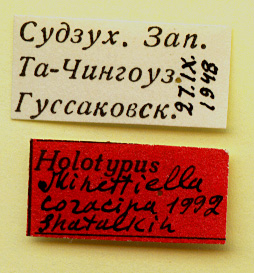 Судзух. Зап.
Та-Чингоуз
Гуссаковск.
27.IX.
1948
Holotypus
Minettiella
coracina 1992
Shatalkin